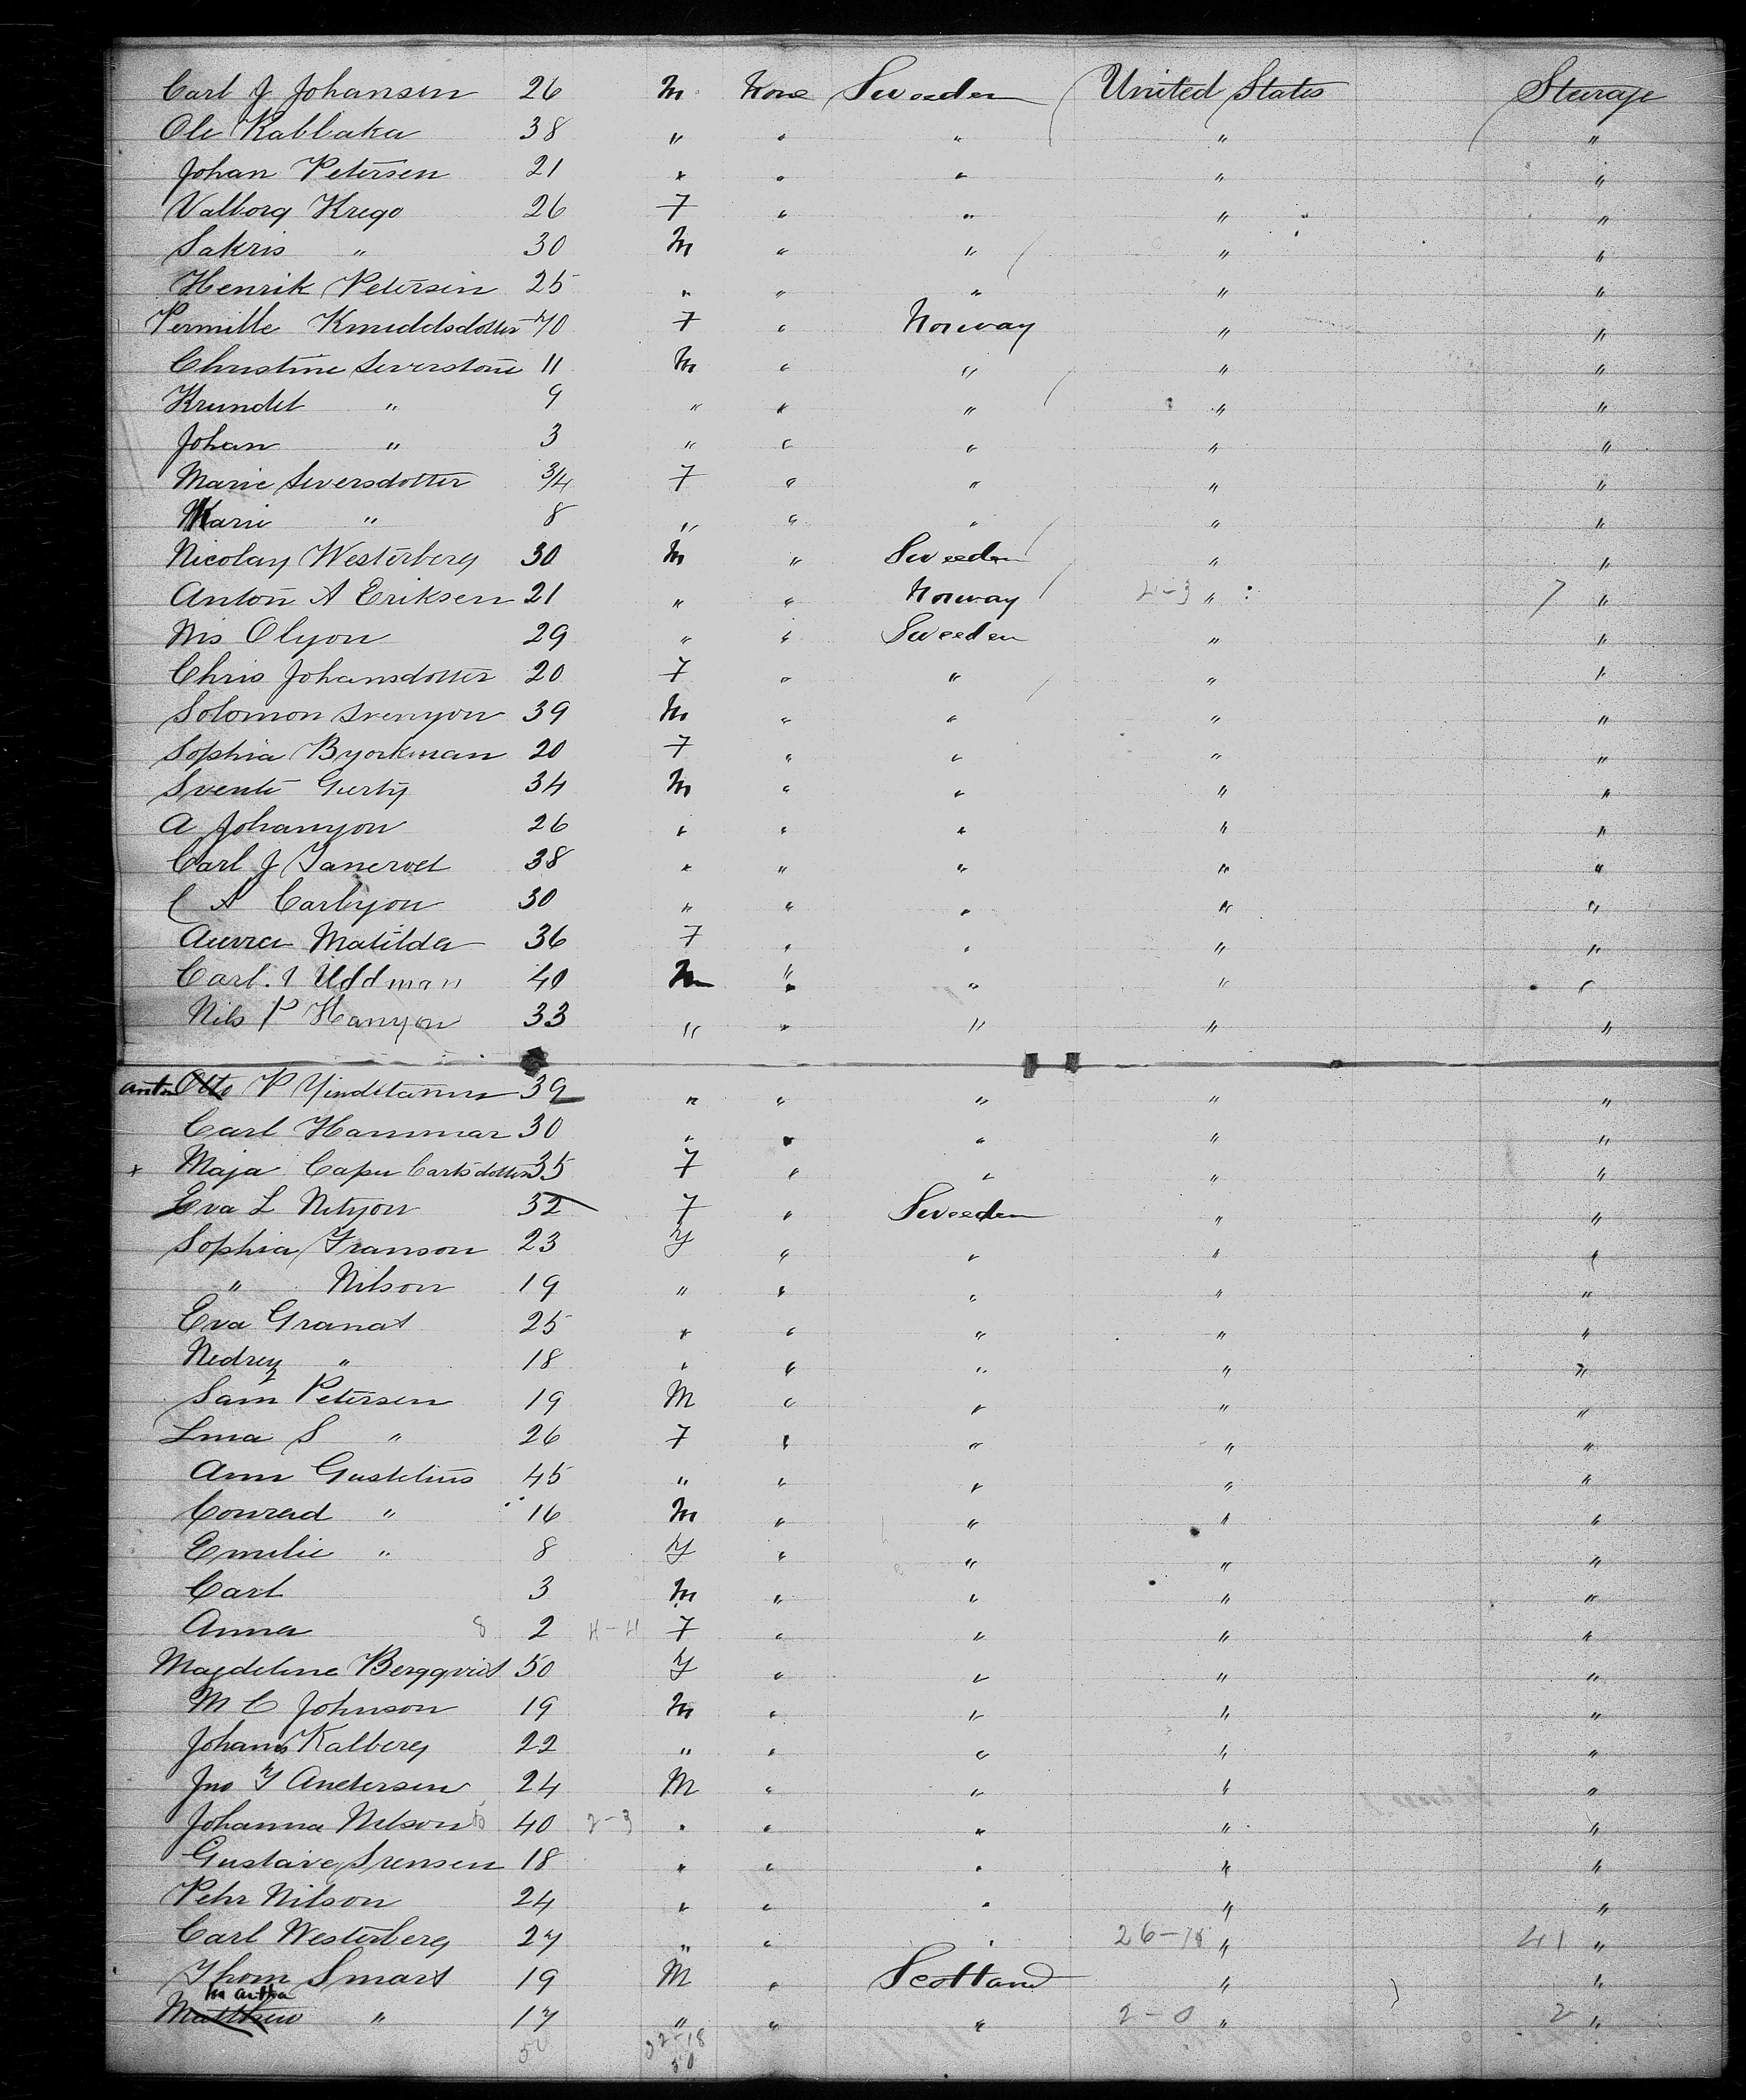 Carl J Johansen 26 M None Sweeden United States Sterage
Ole Kablaka 38 " " " " "
Johan Petersen 21 " " " " "
Valborg Krego 26 F " " " "
Sakris " 30 M " " " "
Henrik Petersen 25 " " " " "
Pernille Knuddsdotter 70 F " Norway " "
Christine Severstone 11 M " " " "
Krundel " 9 " " " " "
Johan " 3 " " " " "
Marie Seversdotter 3/4 F " " " "
Karie " 8 " " " " "
Nicolay Westerberg 30 M " Sweeden " "
Anton A Eriksen 21 " " Norway 4-3 " 7 "
Nis Olyon 29 " " Sweeden " "
Chris Johansdotter 20 F " " " "
Solomon Svenyon 39 M " " " "
Sophia Byorkman 20 F " " " "
Svente Gurty 34 M " " " "
A Johanyon 26 " " " " "
Carl J 38 " " " " "
C A Carlyon 30 " " " " "
Matilda 36 F " " " "
Carl. Uddman 40 M " " " "
Nils P Hanyon 33 " " " " "
Anton Otto P 39 " " " " "
Carl Hammar 30 " " " " "
x Maja Capu Carlsdotter 35 F " " " "
Eva L Nilyon 32 F " Sweeden " "
Sophia Franson 23 F " " " "
" Nilson 19 " " " " "
Eva Granat 25 " " " " "
Nedrey " 18 " " " " "
Sam Petersen 19 M " " " "
Lina S " 26 F " " " "
Ann Gustelius 45 " " " " "
Conrad " 16 M " " " "
Emelie " 8 F " " " "
Carl 3 M " " " "
Anna 8 2 4-4 F " " " "
Magdeline Bergqvist 50 F " " " "
M C Johnson 19 M " " " "
Johans Kalberg 22 " " " " "
Jno F Andersen 24 M " " " "
Johanna Nelson 40 2-3 " " " " "
Gustave Srensen 18 " " " " "
Pehr Nilson 24 " " " " "
Carl Westerberg 27 " " " 26-15 " 41 "
Thom Smart 19 M " Scotland " "
Martha
Matthew " 17 " " " 2-0 " 2 "
50 32-18
50